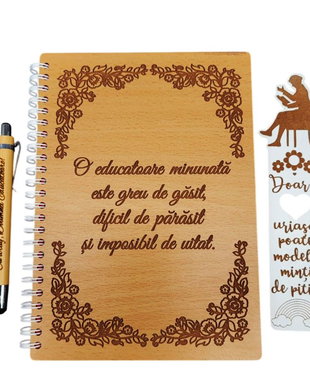 O educatoare minunată
este greu de găsit,
dificil de părăsit
și imposibil de uitat.
Doar
uriașe
poate
model
minți
de pitic